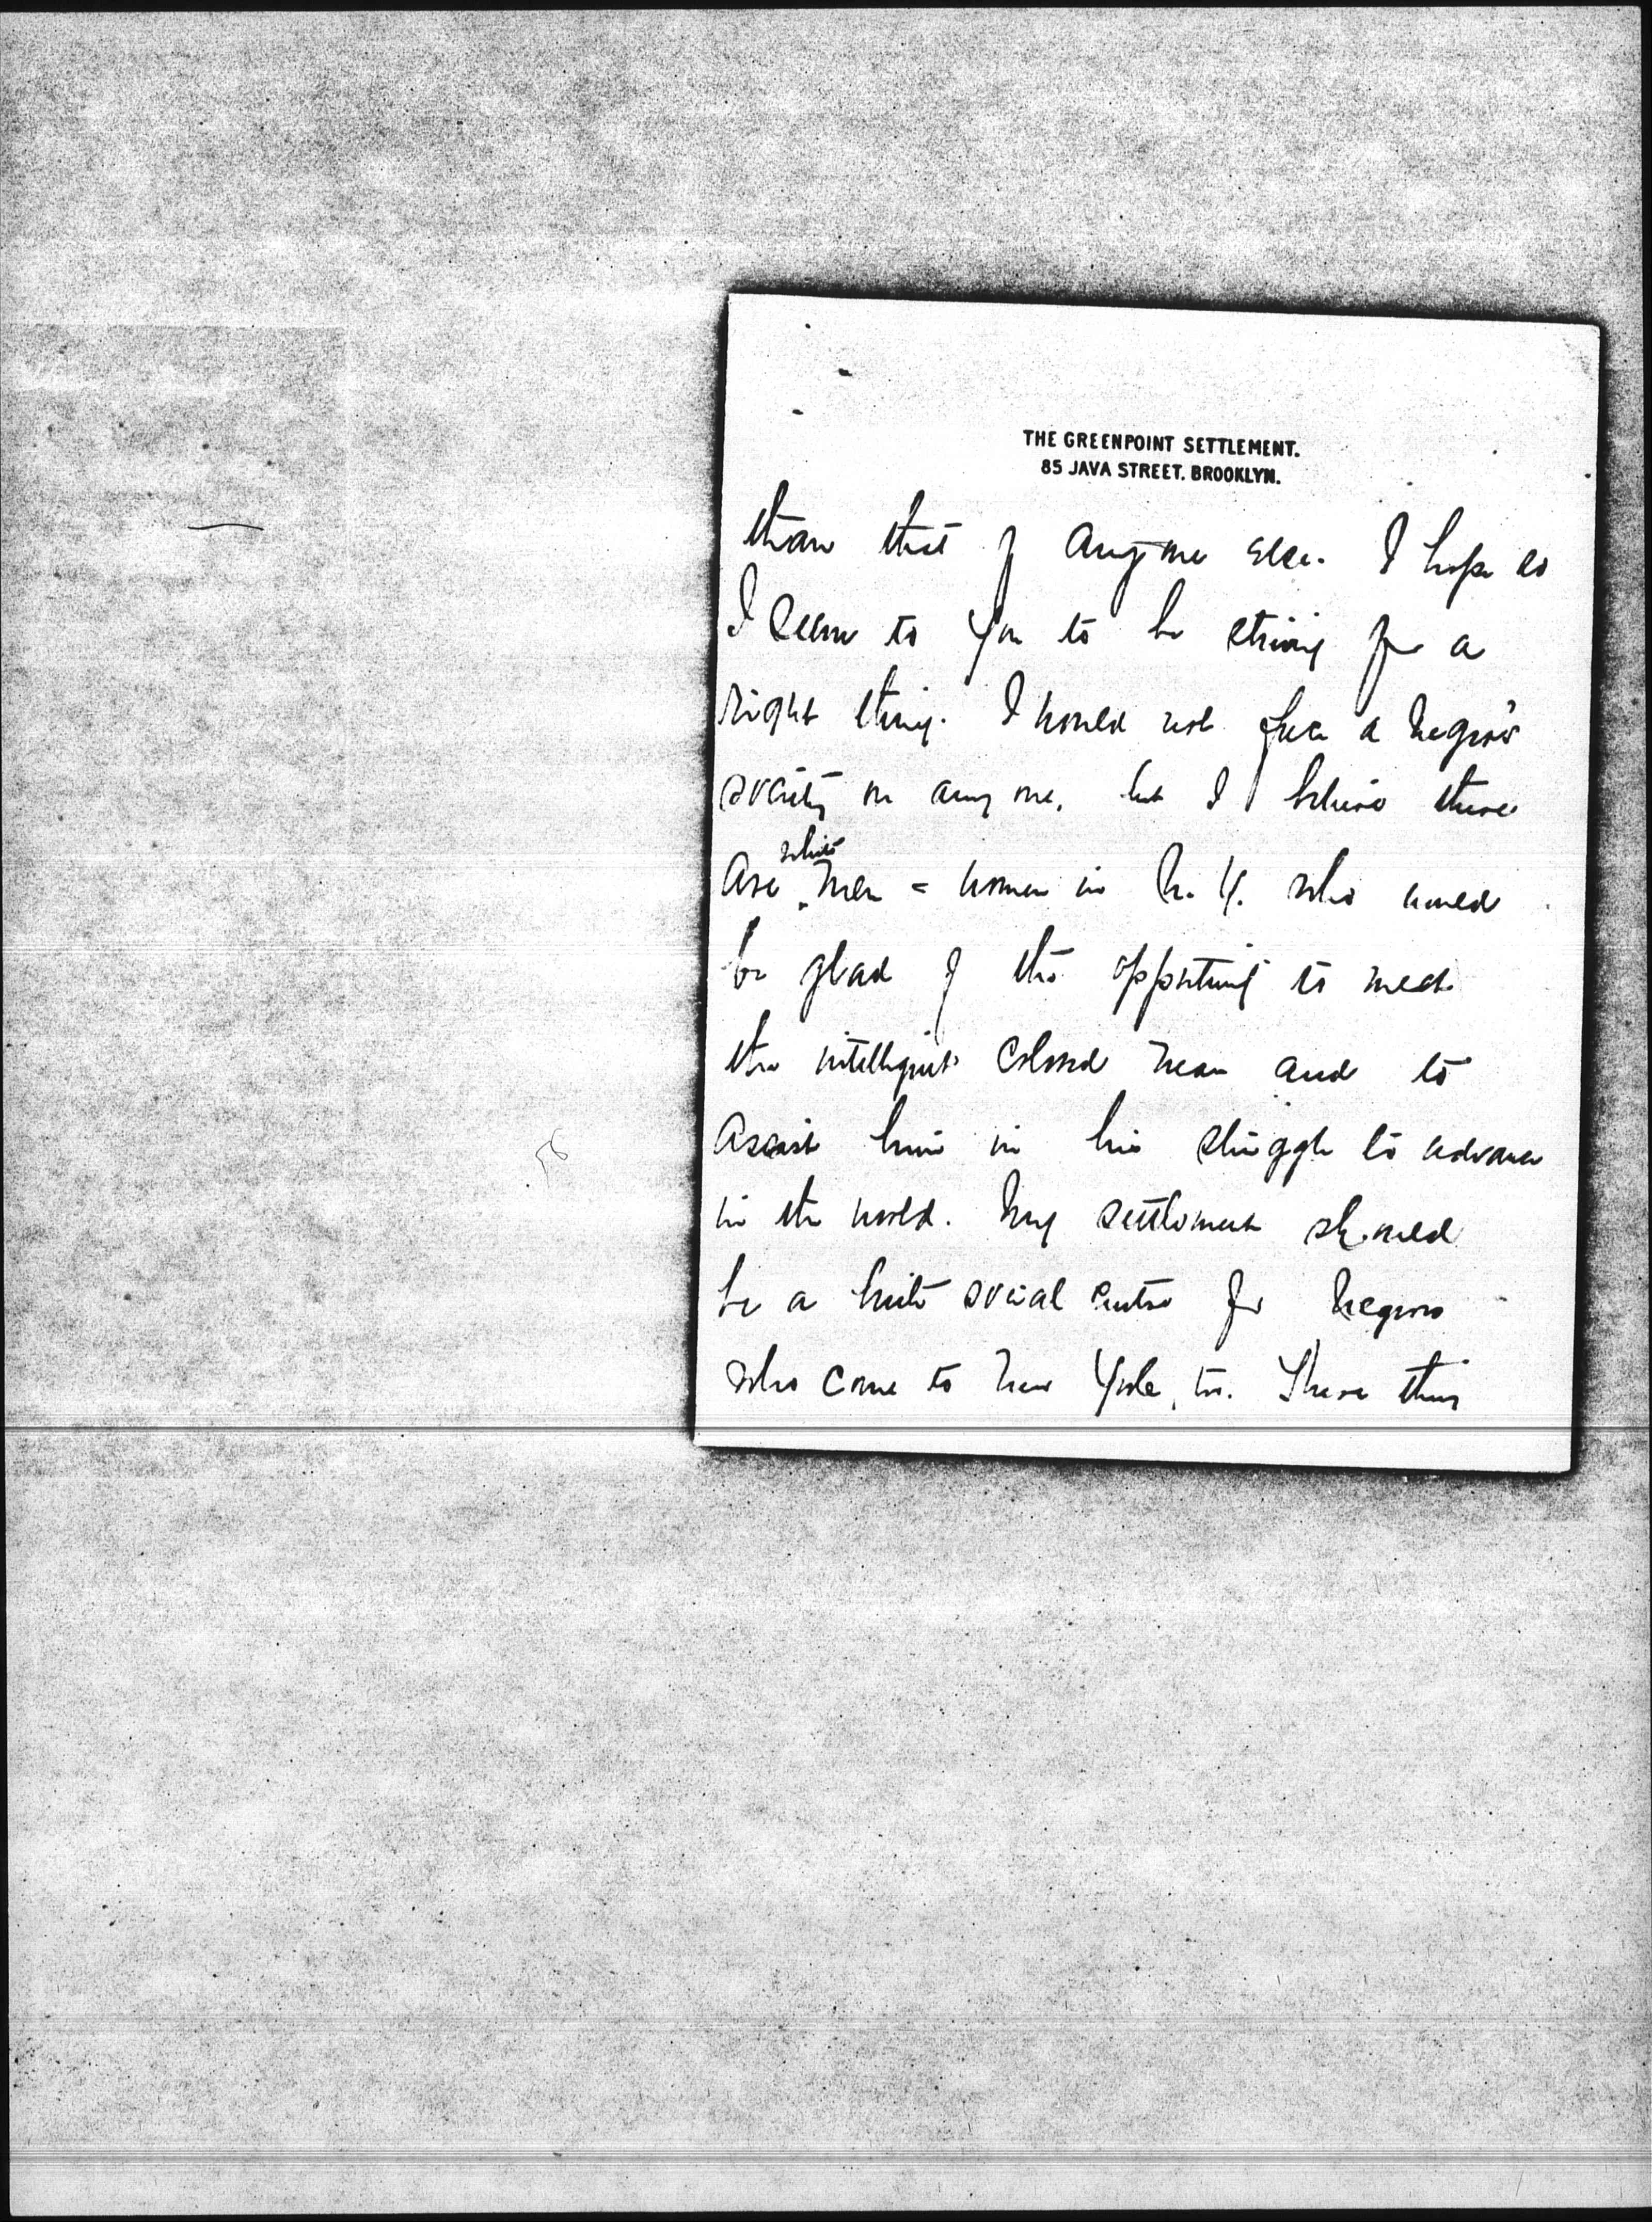 THE GREENPOINT SETTLEMENT.
85 JAVA STREET. BROOKLYN.
than that of anyone else. I hope so
I seem to you to be striving for a
right thing. I would not force a negro's
society on any one, but I believe there
are white men = women in N. Y. who would
be glad of the opportunity to meet
the intelligent colored man and to
assist him in his struggle to advance
in the world. My settlement should
be a little social centre for negroes
who come to New York, too. These things
56